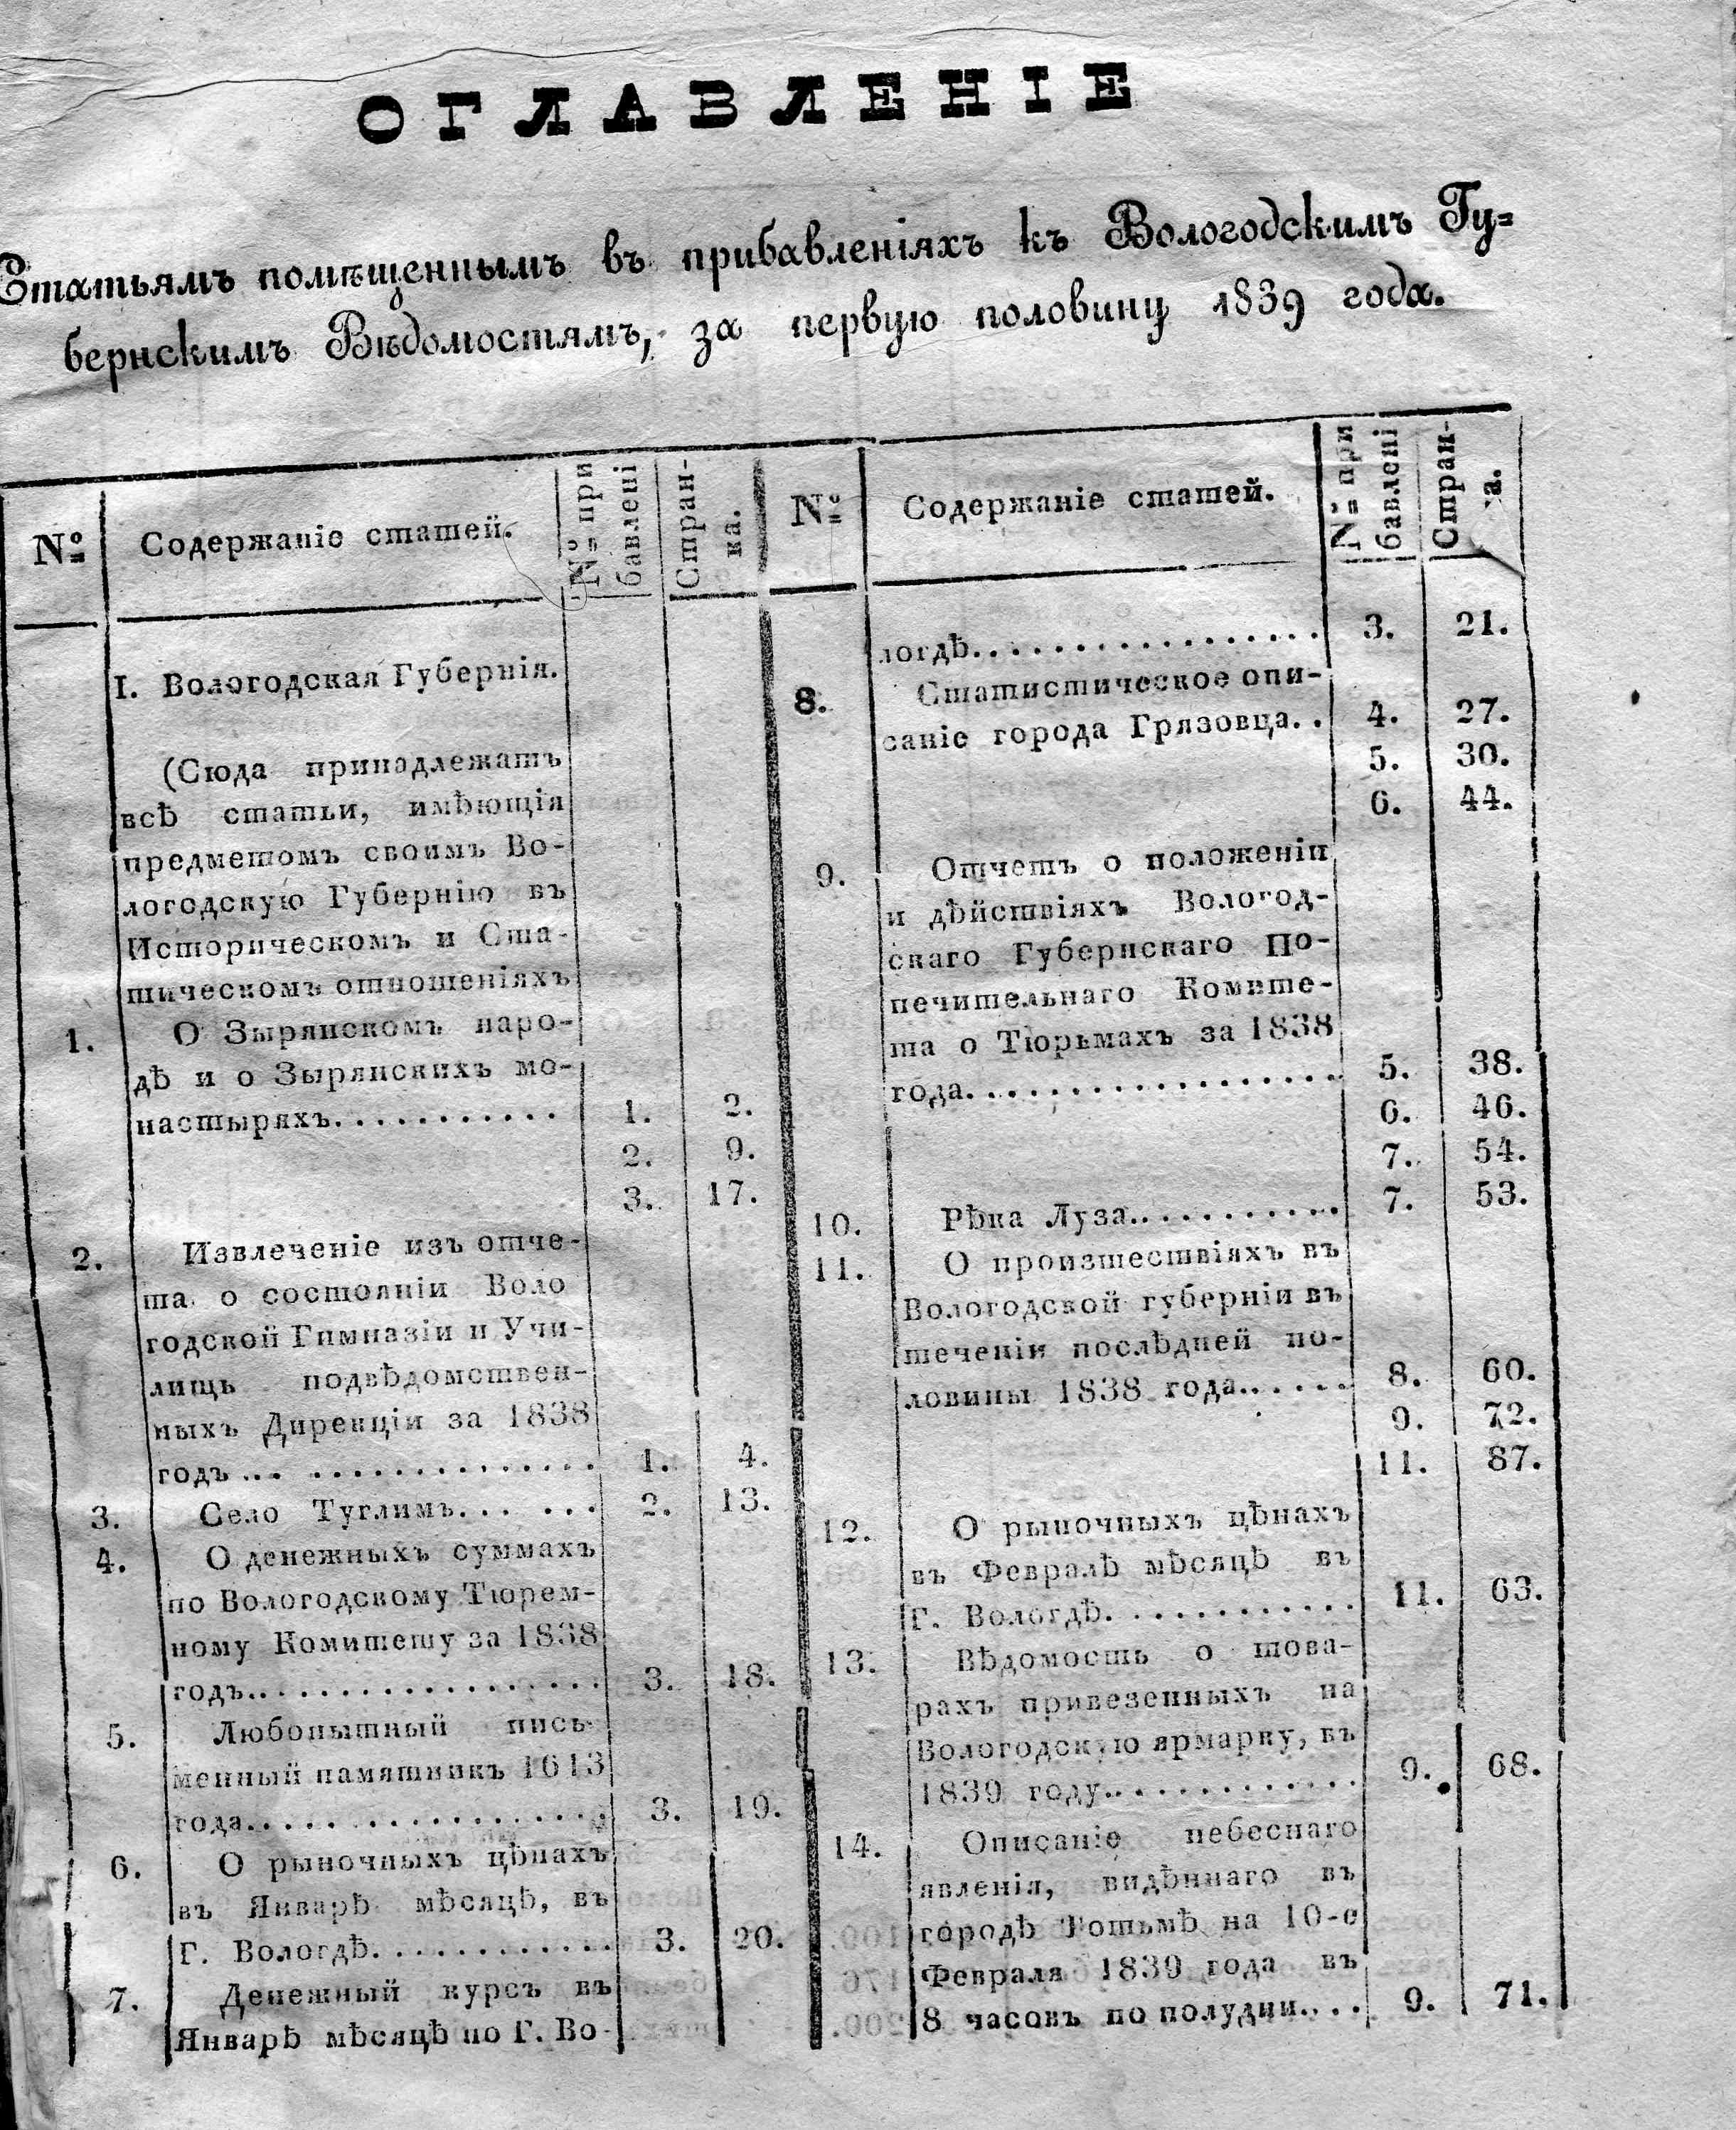 ОГЛАВЛЕНІЕ
Статьямъ помѣщеннымъ въ прибавленіяхъ къ Вологодскимъ Гу=
бернскимъ Вѣдомостямъ, за первую половину 1839 года.
№ Содержаніе статей. № при бавлені Стран- ка.
I. Вологодская Губернія.
(Сюда принадлежатъ
всѣ статьи, имѣющія
предметомъ своимъ Во-
логодскую Губернію въ
Историческомъ и Ста-
тическомъ отношеніяхъ
1. О Зырянскомъ наро-
дѣ и о Зырянскихъ мо-
настыряхъ........... 1. 2.
2. 9.
3. 17.
2. Извлеченіе изъ отче-
та о состояніи Воло
годской Гимназіи и Учи-
лищъ подвѣдомствен-
ныхъ Дирекціи за 1838
годъ... .............. 1. 4.
3. Село Туглимъ... ... 2. 13.
4. О денежныхъ суммахъ
по Вологодскому Тюрем-
ному Комитету за 1838
годъ.................. 3. 18.
5. Любопытный пись-
менный памятникъ 1613
года.................. 3. 19.
6. О рыночныхъ цѣнахъ
въ Январѣ мѣсяцѣ, въ
Г. Вологдѣ............ 3. 20.
7. Денежный курсъ въ
Январѣ мѣсяцѣ по Г. Во-
№ Содержаніе статей. № при бавлені Стран- а.
логдѣ................. 3. 21.
8. Статистическое опи-
саніе города Грязовца.. 4. 27.
5. 30.
6. 44.
9. Отчетъ о положеніи
и дѣйствіяхъ Вологод-
скаго Губернскаго По-
печительнаго Комите-
та о Тюрьмахъ за 1838
года.................. 5. 38.
6. 46.
7. 54.
10. Рѣка Луза........... 7. 53.
11. О произшествіяхъ въ
Вологодской губерніи въ
теченіи послѣдней по-
ловины 1838 года...... 8. 60.
9. 72.
11. 87.
12. О рыночныхъ цѣнахъ
въ Февралѣ мѣсяцѣ въ
Г. Вологдѣ............ 11. 63.
13. Вѣдомость о това-
рахъ привезенныхъ на
Вологодскую ярмарку, въ
1839 году............. 9. 68.
14. Описаніе небеснаго
явленія, видѣннаго въ
городѣ Тотьмѣ на 10-е
Февраля 1839 года въ
8 часовъ по полудни.... 9. 71.